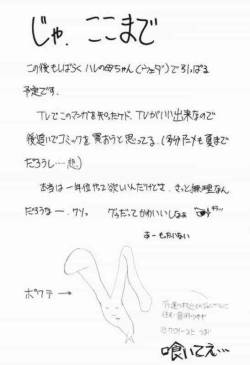 じゃ、ここまで
この後もしばらく ハレの母ちゃん(ウェダ)で引っぱる
予定です.
TVでこのマンガを知ったケド、TVがバツ出来なので
後追いでコミックを買おうと思ってる.(多分アニメも夏まで
だろうし…悲)
本当は一年位やって欲しいんだけどさ.きっと無理なん
だろうなー.クソッ.
グゥだってかわいいしなぁ
あーもったいない
ポクテ→
喰いてえ…